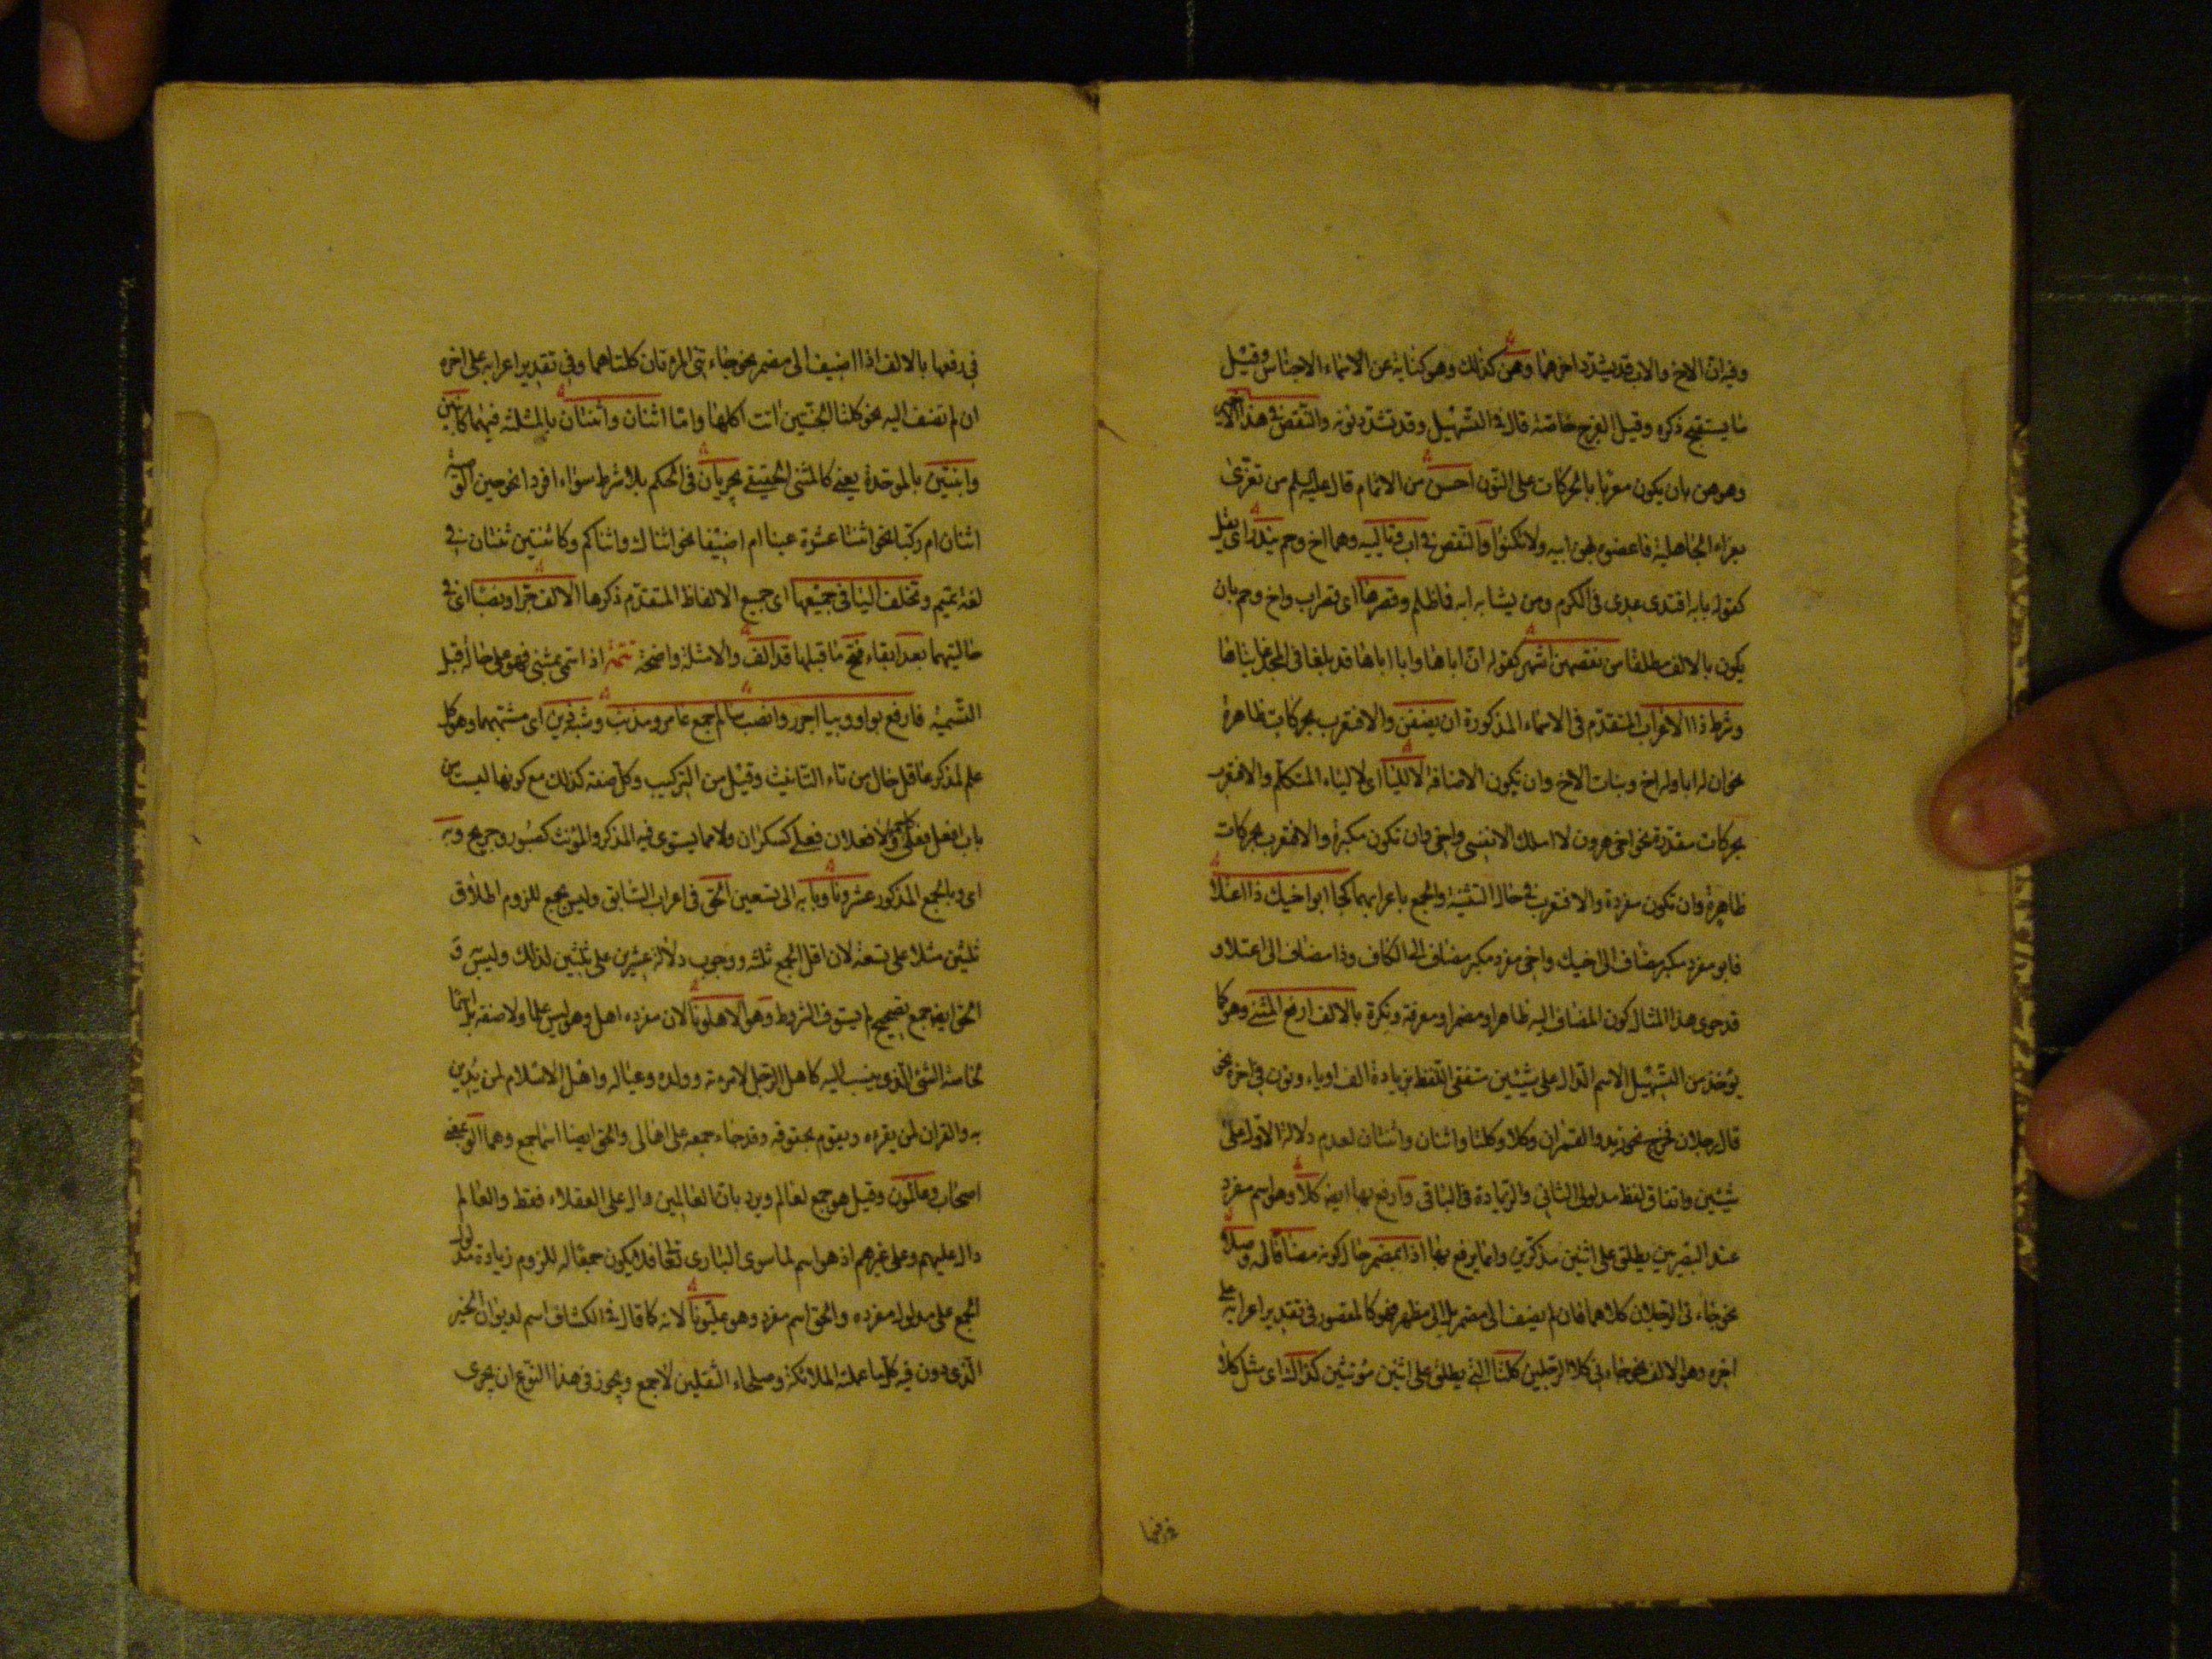 وفيه ان الاخ والاب قد يشدد اخرهما وهن كذلك وهو كناية عن الاسماء الاجناس وقيل
ما يستقبح ذكره وقيل الفرج خاصة قال في التسهيل وقد تشدد نونه والنقص في هذا الاخير
وهو هن بان يكون معربا بالحركات على النون احسن من الاتمام قال عليه السلم من تعزى
بعزاء الجاهلية فاعضوه بهن ابيه ولا تكنوا والنقص في اب وتالييه وهما اخ وحم يندر اى يقل
كقوله بابه اقتدى عدى في الكرم ومن يشابه ابه فما ظلم وقصرها اى قصر اب واخ وحم بان
يكون بالالف مطلقا من نقصهن اشهر كقوله ان اباها وابا اباها قد بلغا في المجد غايتاها
وشرط ذا الاعراب المتقدم في الاسماء المذكورة ان يضفن والا فتعرب بحركات ظاهرة
نحو ان له ابا وله اخ وبنات الاخ وان تكون الاضافة لا لليا اى لا لياء المتكلم والا فتعرب
بحركات مقدرة نحو اخى هرون لا املك الا نفسى واخى وان تكون مكبرة والا فتعرب بحركات
ظاهرة وان تكون مفردة والا فتعرب في حال التثنية والجمع باعرابهما كجا ابو اخيك ذا اعتلا
فابو مفرد مكبر مضاف الى اخيك واخى مفرد مكبر مضاف الى الكاف وذا مضاف الى اعتلا و
قد حوى هذا المثال كون المضاف اليه ظاهرا ومضمرا ومعرفة ونكرة بالالف ارفع المثنى وهو كما
يوخذ من التسهيل الاسم الدال على شيئين متفقى اللفظ بزيادة الف او ياء ونون في اخره نحو
قال رجلان فخرج نحو زيد والقمران وكلا وكلتا واثنان واثنتان لعدم دلالة الاول على
شيئين واتفاق لفظ مدلولى الثانى والزيادة في الباقى وارفع بها ايضا كلا وهو اسم مفرد
عند البصريين يطلق على اثنين مذكرين وانما يرفع بها اذا بمضمر حال كونه مضافا له وصلا
نحو جاءنى الرجلان كلاهما فان لم يضف الى مضمر بل الى مظهر فهو كالمقصور في تقدير اعرابه على
اخره وهو الالف نحو جاءنى كلا الرجلين كلتا التى يطلق على اثنين مونثين كذاك اى مثل كلا
في رفعها بالالف اذا اضيف الى مضمر نحو جاءتنى المرءتان كلتاهما وفي تقدير اعرابه على اخره
ان لم تضف اليه نحو كلتا الجنتين اتت اكلها واما اثنان واثنتان بالمثلثة فيهما كابنين
وابنتين بالموحدة يعنى كالمثنى الحقيقى يجريان في الحكم بلا شرط سواء افردا نحو حين الوصية
اثنان ام ركبا نحو اثنتا عشرة عينا ام اضيفا نحو اثناك واثناكم وكاثنتين ثنتان في
لغة تميم وتخلف اليا في جميعها اى جميع الالفاظ المتقدم ذكرها الالف جرا ونصبا اى في
حالتيهما بعد ابقاء فتح ما قبلها قد الف والامثلة واضحة تتمة اذا سمى بمثنى فهو على حاله قبل
التسمية فارفع بواو وبيا اجرر وانصب سالم جمع عامر ومذنب وشبه ذين اى مشبههما وهو كل
علم لمذكر عاقل خال من تاء التانيث وقيل من التركيب وكل صفة كذلك مع كونها ليست من
باب افعل فعلى ولا فعلان فعلى كسكران ولا مما يستوى فيه المذكر والمؤنث كصبور وجريح وبه
اى وبالجمع المذكور عشرونا وبابه الى تسعين الحق في اعرابه السابق وليس بجمع للزوم اطلاق
ثلثين مثلا على تسعة لان اقل الجمع ثلثه ووجوب دلالة عشرين على ثلثين لذلك وليس و
الحق ايضا جمع تصحيح لم يستوف الشروط وهو الاهلونا لان مفرده اهل وهو ليس علما ولا صفة بل اسما
لخاصة الشئ الذى ينسب اليه كاهل الرجل لامرءته وولده وعياله واهل الاسلام لمن يدين
به والقران لمن يقرءه ويقوم بحقوقه وقد جاء جمعه على اهالى والحق ايضا اسما جمع وهما اولو بمعنى
اصحاب وعالمون وقيل هو جمع لعالم ويرد بان العالمين دال على العقلاء فقط والعالم
دال عليهم وعلى غيرهم اذ هو اسم لما سوى البارى تعالى فلا يكون جمعا له للزوم زيادة مدلول
الجمع على مدلول مفرده والحق اسم مفرد وهو عليونا لانه كما قال في الكشاف اسم لديوان الخير
الذى دون فيه كل ما عمله الملائكة وصلحاء الثقلين لا جمع ويجوز في هذا النوع ان يجرى